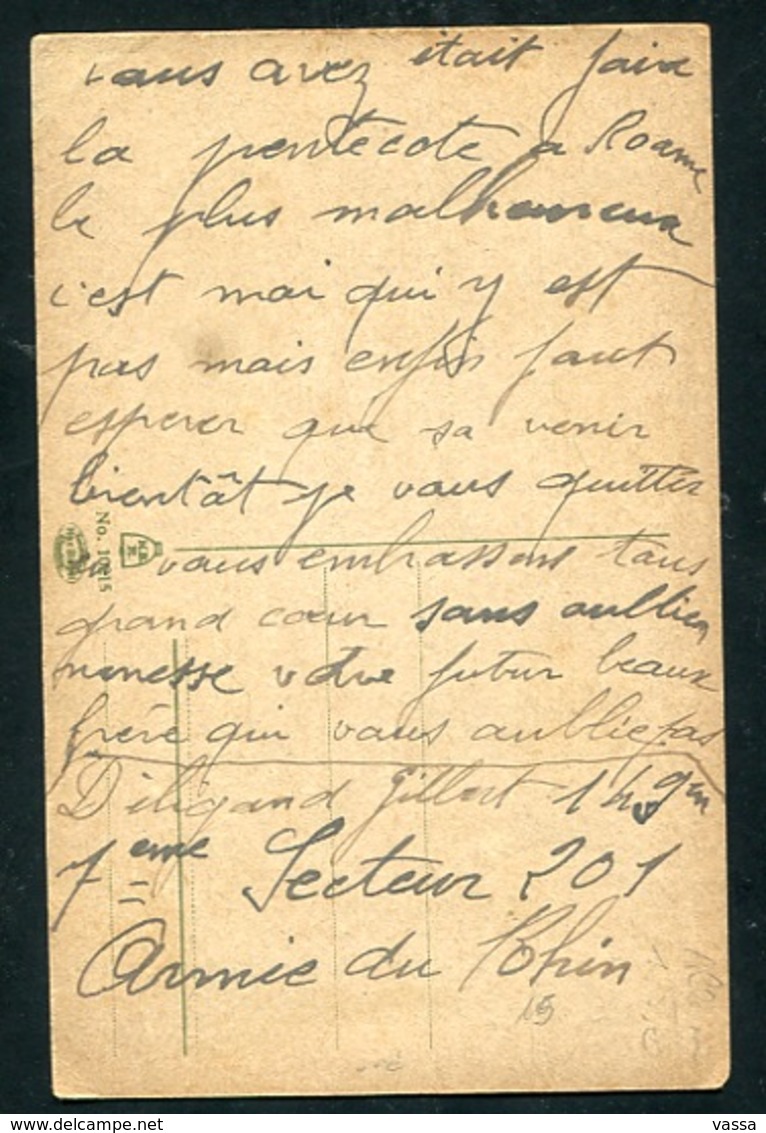 vous avez était faire
la pentecote a Roanne
le plus malheureux
c'est moi qui y est
pas mais enfin faut
esperer que sa venir
bientôt je vous quitter
vous embrassent tous
grand cœur sans oublier
votre futur beaux
frère qui vous oublie pas
Déligand Gilbert
7eme Secteur 201
Armie du Rhin
15
No. 10215
vassa